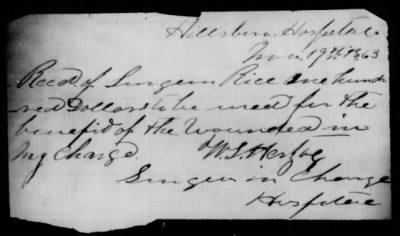 Hillsboro Hospital
19th 1863
Recd of Surgeon Rice One hund
red Dollars to be used for the
benefit of the Wounded in
my Charge.
Surgeon in Charge
Hospital